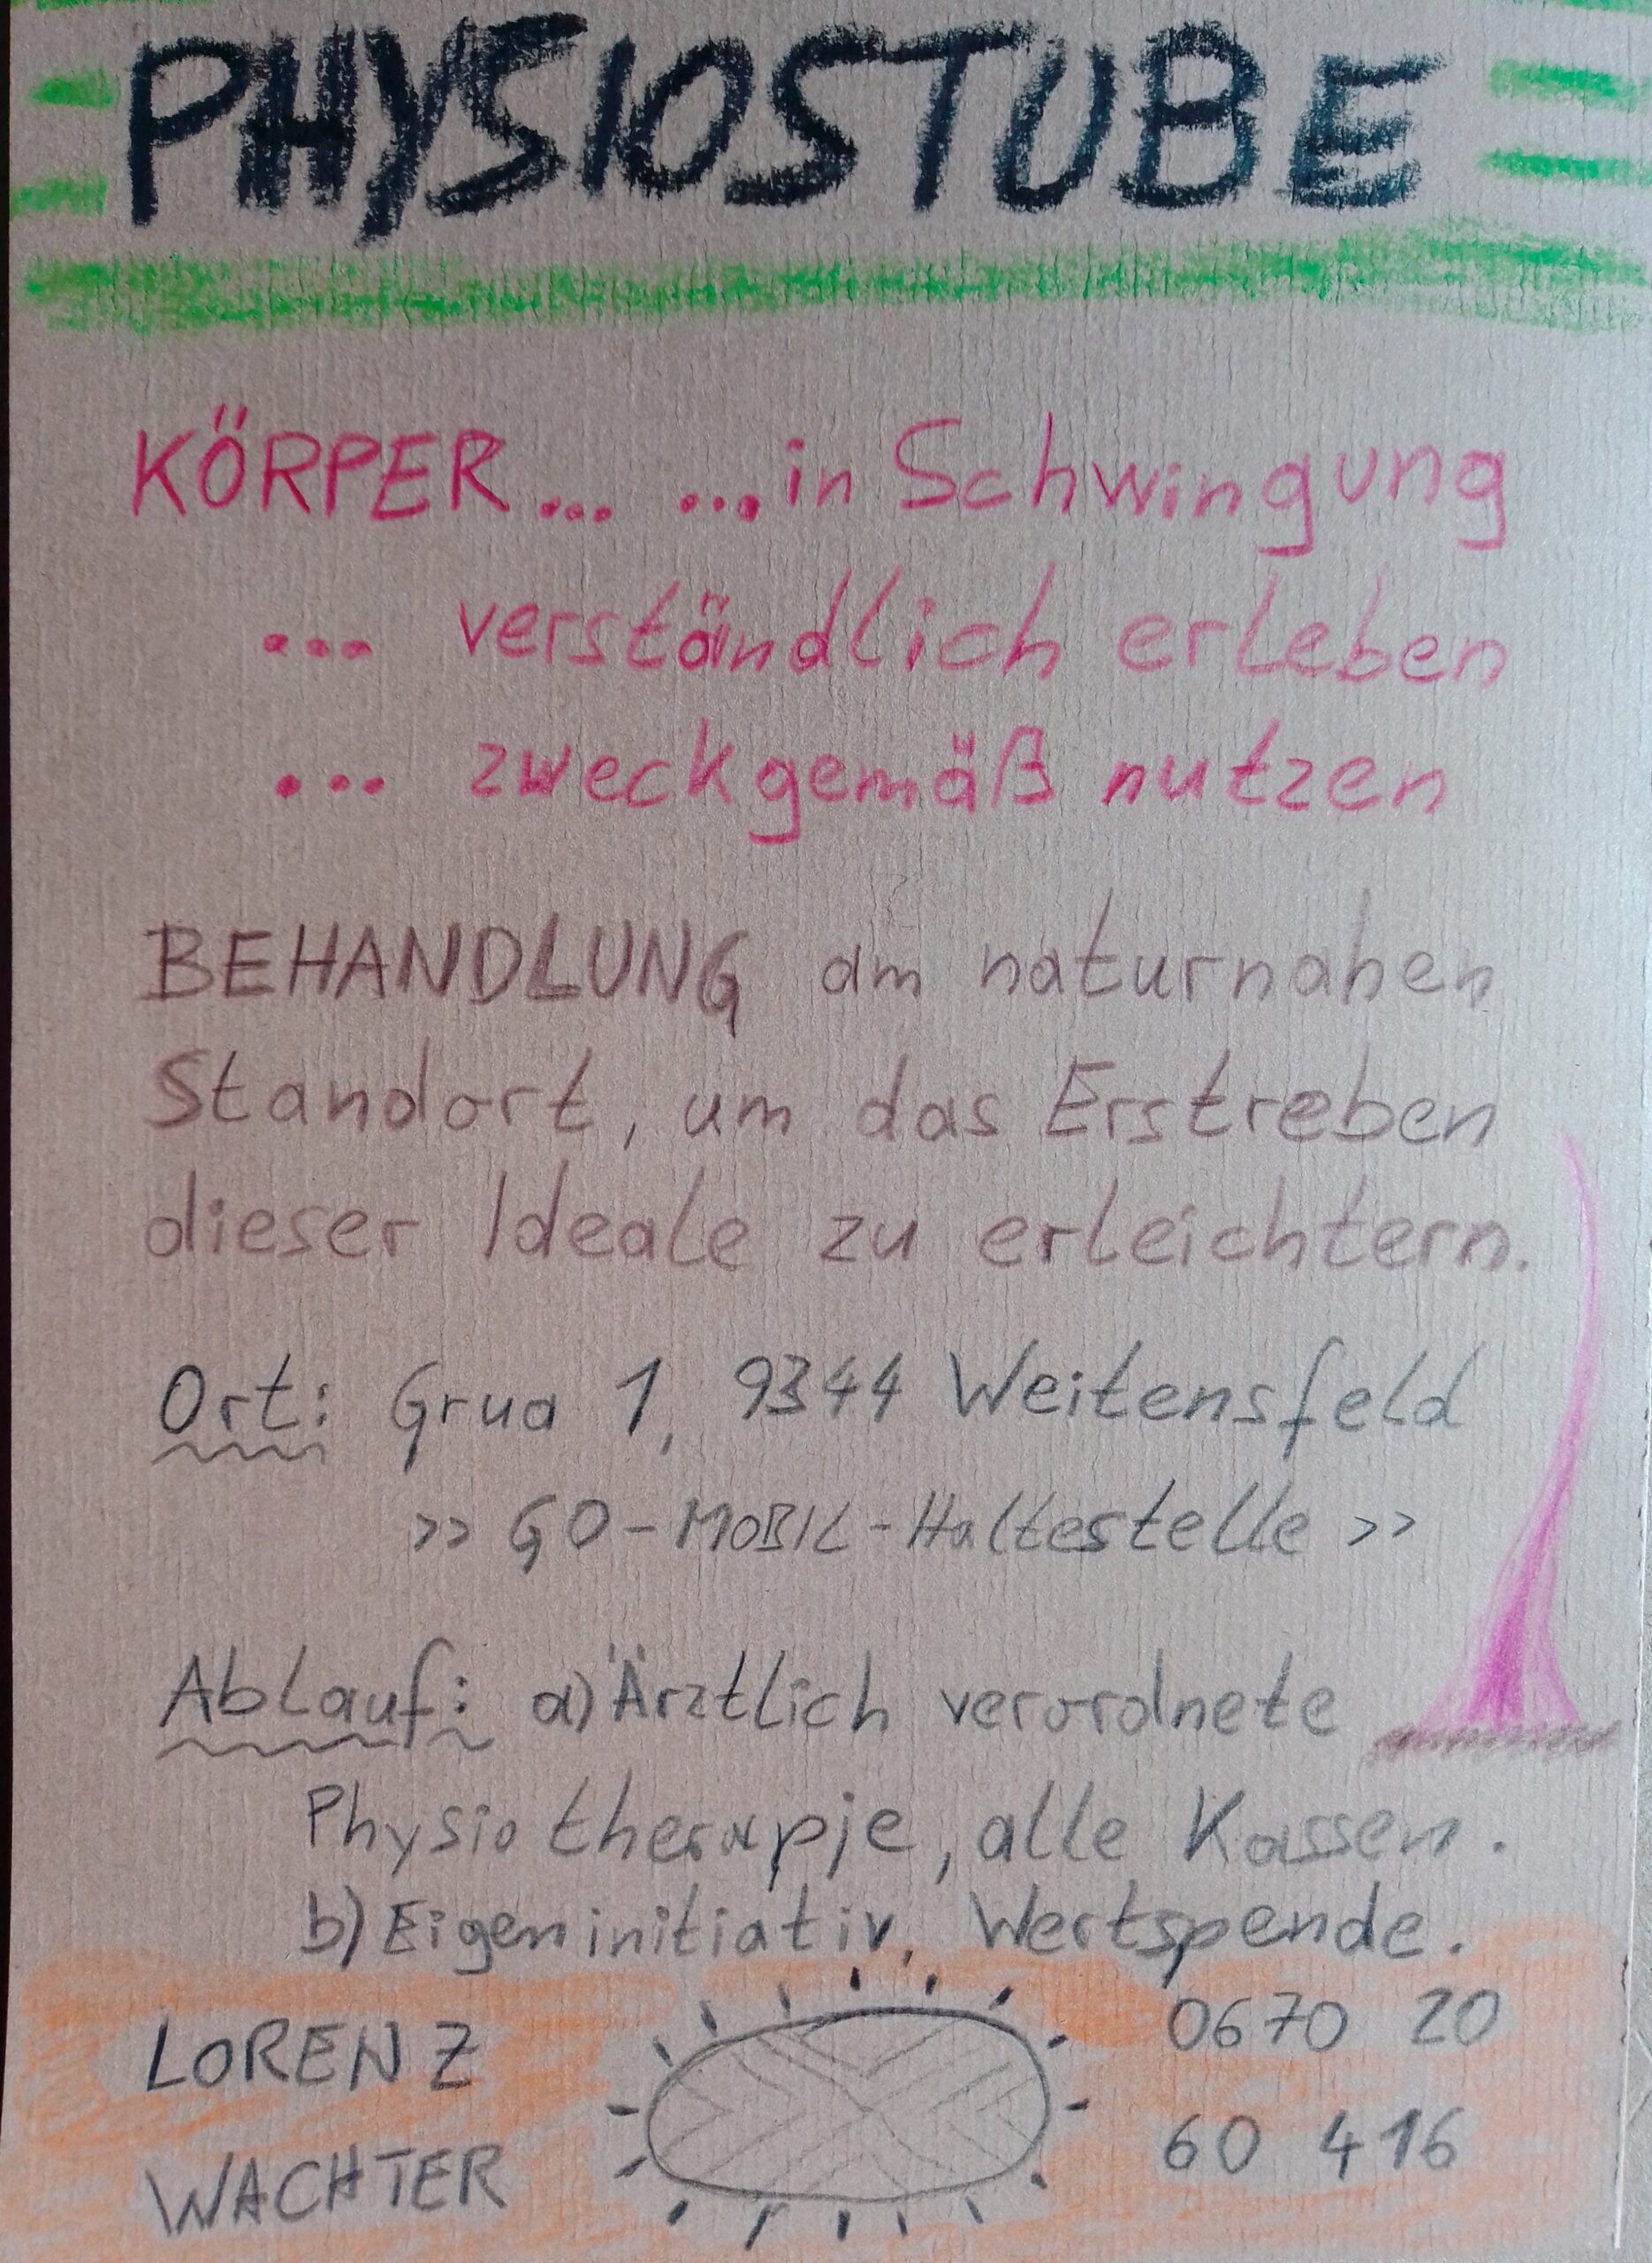 PHYSIOSTUBE
KÖRPER... ...in Schwingung
... verständlich erleben
... zweckgemäß nutzen
BEHANDLUNG am naturnahen
Standort, um das Erstreben
dieser Ideale zu erleichtern.
Ort: Grua 1, 9344 Weitensfeld
>> GO-MOBIL-Haltestelle >>
Ablauf: a) Ärztlich verordnete
Physiotherapie, alle Kassen.
b) Eigeninitiativ, Wertspende.
LORENZ
WACHTER
0670 20
60 416